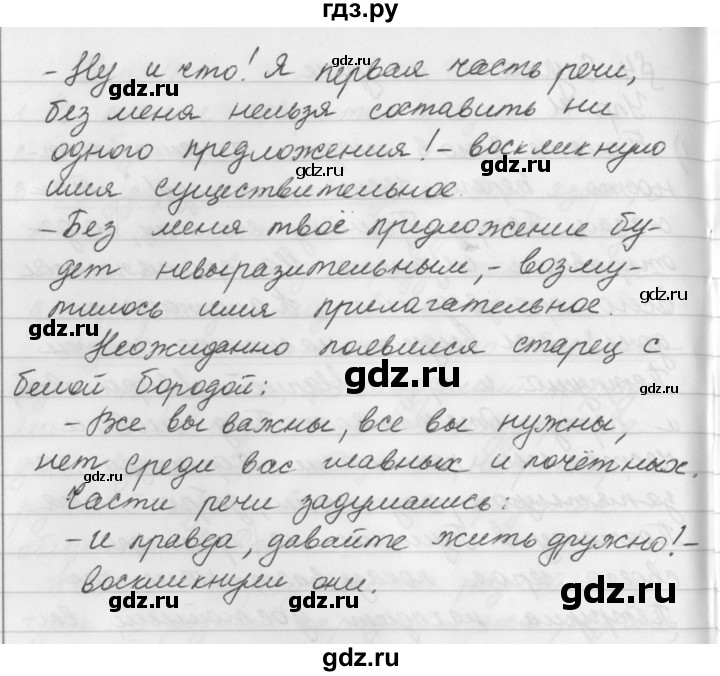 гдз.ру
- Ну и что! Я первая часть речи,
gdz.ru
без меня нельзя составить ни
gdz.ru
одного предложения! - воскликнуло
gdz.ru
имя существительное.
- Без меня твоё предложение бу-
gdz.ru
дет невыразительным, - возму-
gdz.ru
тилось имя прилагательное.
gdz.ru
Неожиданно появился старец с
gdz.ru
белой бородой:
gdz.ru
- Все вы важны, все вы нужны,
gdz.ru
нет среди вас главных и почётных.
gdz.ru
Части речи задумались:
gdz.ru
- И правда, давайте жить дружно! -
gdz.ru
воскликнули они.
gdz.ru
gdz.ru
gdz.ru
gdz.ru